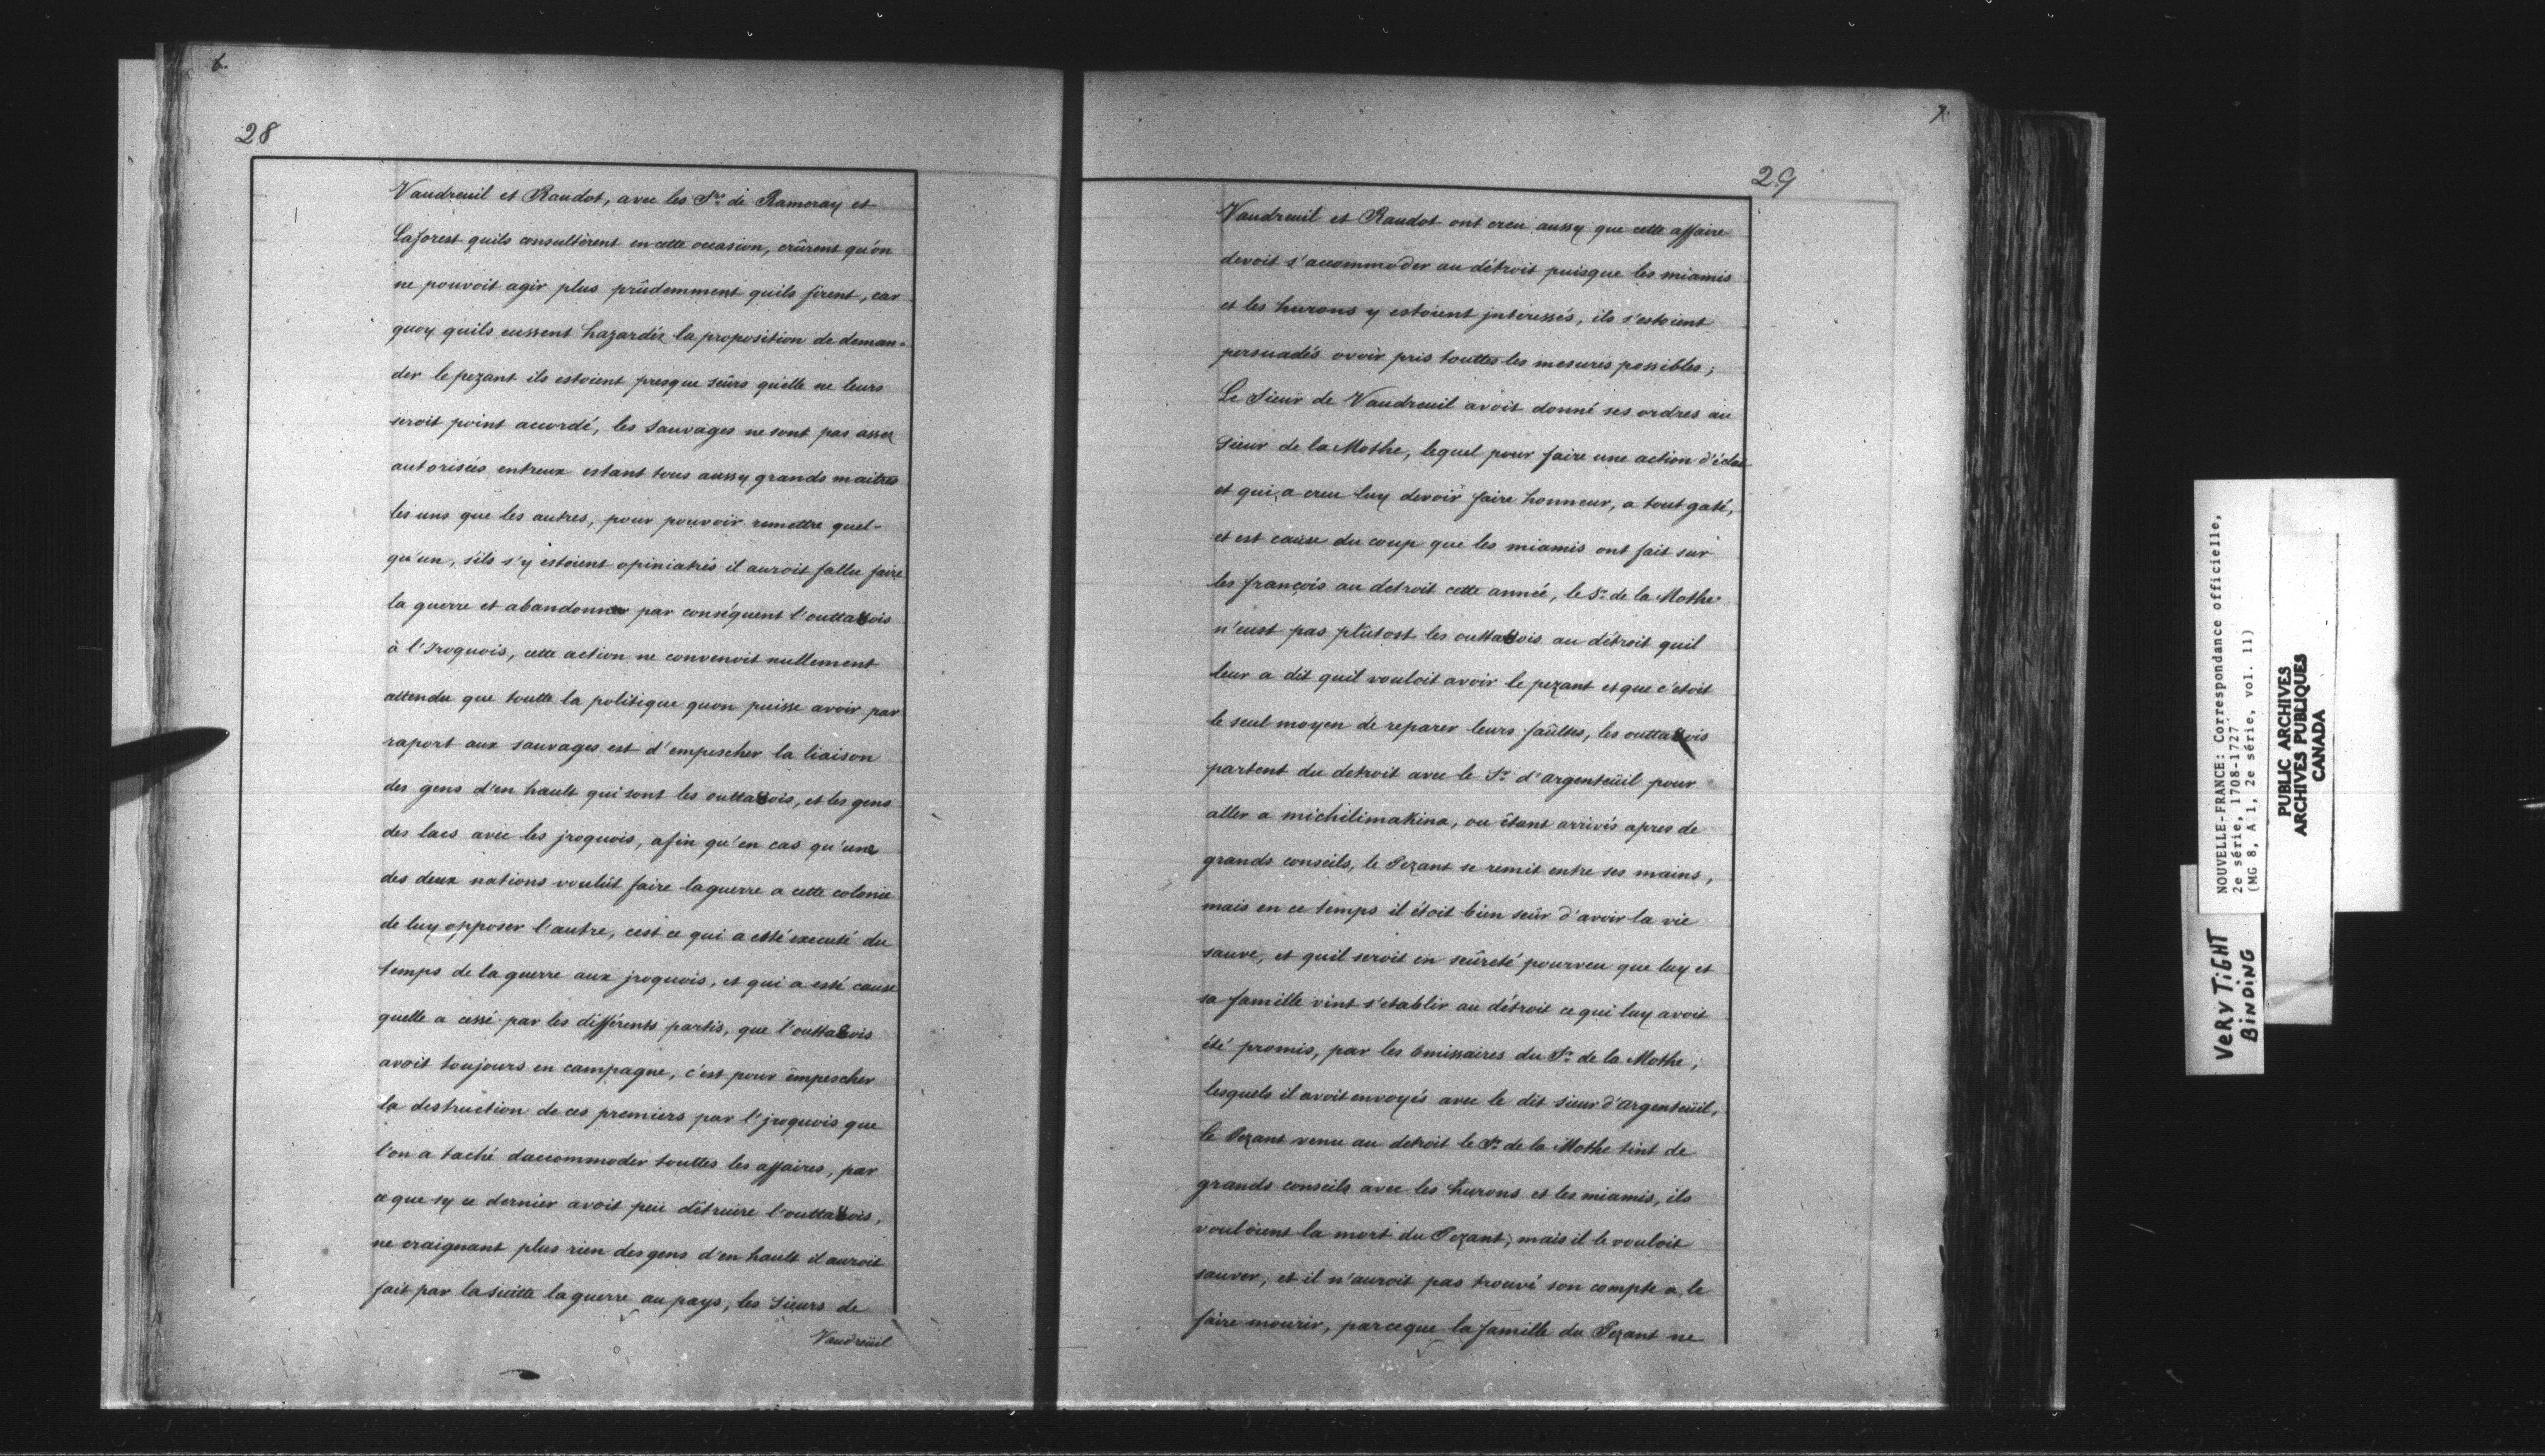 6.
28
Vaudreuil et Raudot, avec les Srs de Rameray et
Laforest quils consultèrent en cette occasion, crûrent qu'on
ne pouvoit agir plus prûdemment quils firent, car
quoy quils eussent hazardés la proposition de deman-
der le pezant ils estoient presque seûrs qu'elle ne leurs
seroit point accordé, les sauvages ne sont pas assez
autorisées entreux estant tous aussy grands maitres
les uns que les autres, pour pouvoir remettre quel-
qu'un, s'ils s'y estoient opiniatrés il auroit fallu faire
la guerre et abandonner par conséquent l'outta8ois
à l'Iroquois, cette action ne convenoit nullement
attendu que toutte la politique quon puisse avoir par
raport aux sauvages est d'empescher la liaison
des gens d'en hault qui sont les outta8ois, et les gens
des lacs avec les jroquois, afin qu'en cas qu'une
des deux nations voulût faire la guerre a cette colonie
de luy opposer l'autre, cest ce qui a esté executé du
temps de la guerre aux jroquois, et qui a esté cause
quelle a cessé par les différents partis, que l'outta8ois
avoit toujours en campagne, c'est pour êmpescher
la destruction de ces premiers par l'jroquois que
l'on a taché daccommoder touttes les affaires, par
ce que sy ce dernier avoit peü détruire l'outta8ois,
ne craignant plus rien des gens d'en hault il auroit
fait par la suitte la guerre au pays, les Sieurs de
Vaudreüil
7.
29
Vaudreuil et Raudot ont creu aussy que cette affaire
devoit s'accommoder au détroit puisque les miamis
et les hurons y estoient jnteressés, ils s'estoient
persuadés avoir pris touttes les mesures possibles;
Le Sieur de Vaudreuil avoit donné ses ordres au
Sieur de la Mothe, lequel pour faire une action d'éclat
et qui a creu luy devoir faire honneur, a tout gaté,
et est cause du coup que les miamis ont fait sur
les françois au detroit cette année, le Sr de la Mothe
n'eust pas plûtost les outta8ois au détroit quil
leur a dit quil vouloit avoir le pezant et que c'étoit
le seul moyen de reparer leurs faûltes, les outta8ois
partent du detroit avec le Sr d'argenteüil pour
aller a michilimakina, ou êtant arrivés apres de
grands conseils, le Pezant se remit entre ses mains,
mais en ce temps il étoit bien seûr d'avoir la vie
sauve, et quil seroit en seûreté pourveu que luy et
sa famille vint s'etablir au détroit ce qui luy avoit
été promis, par les Emissaires du Sr de la Mothe,
lesquels il avoit envoyés avec le dit sieur d'argenteüil,
le Pezant venu au detroit le Sr de la Mothe tint de
grands conseils avec les hurons et les miamis, ils
vouloient la mort du Pezant, mais il le vouloit
sauver, et il n'auroit pas trouvé son compte a le
faire mourir, parceque la famille du Pezant ne
NOUVELLE-FRANCE: Correspondance officielle,
2e série, 1708-1727
(MG 8, A 1, 2e série, vol. 11)
PUBLIC ARCHIVES
ARCHIVES PUBLIQUES
CANADA
VERY TIGHT
BINDING